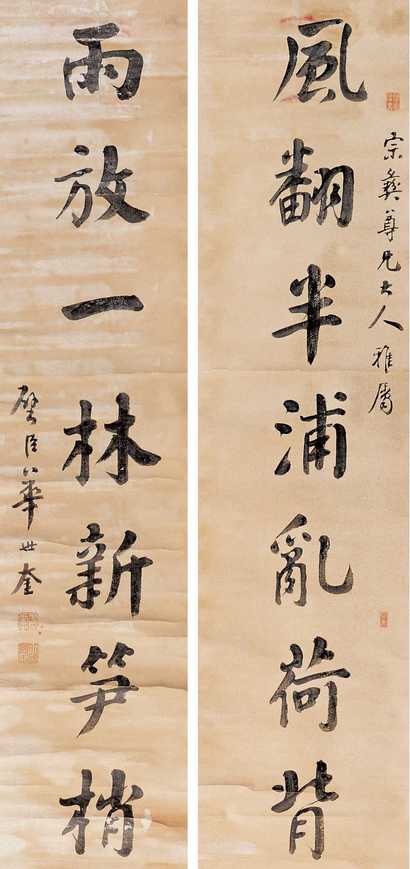 宗彝尊兄大人雅屬
風翻半浦亂荷背
雨放一林新笋梢
璧臣華世奎